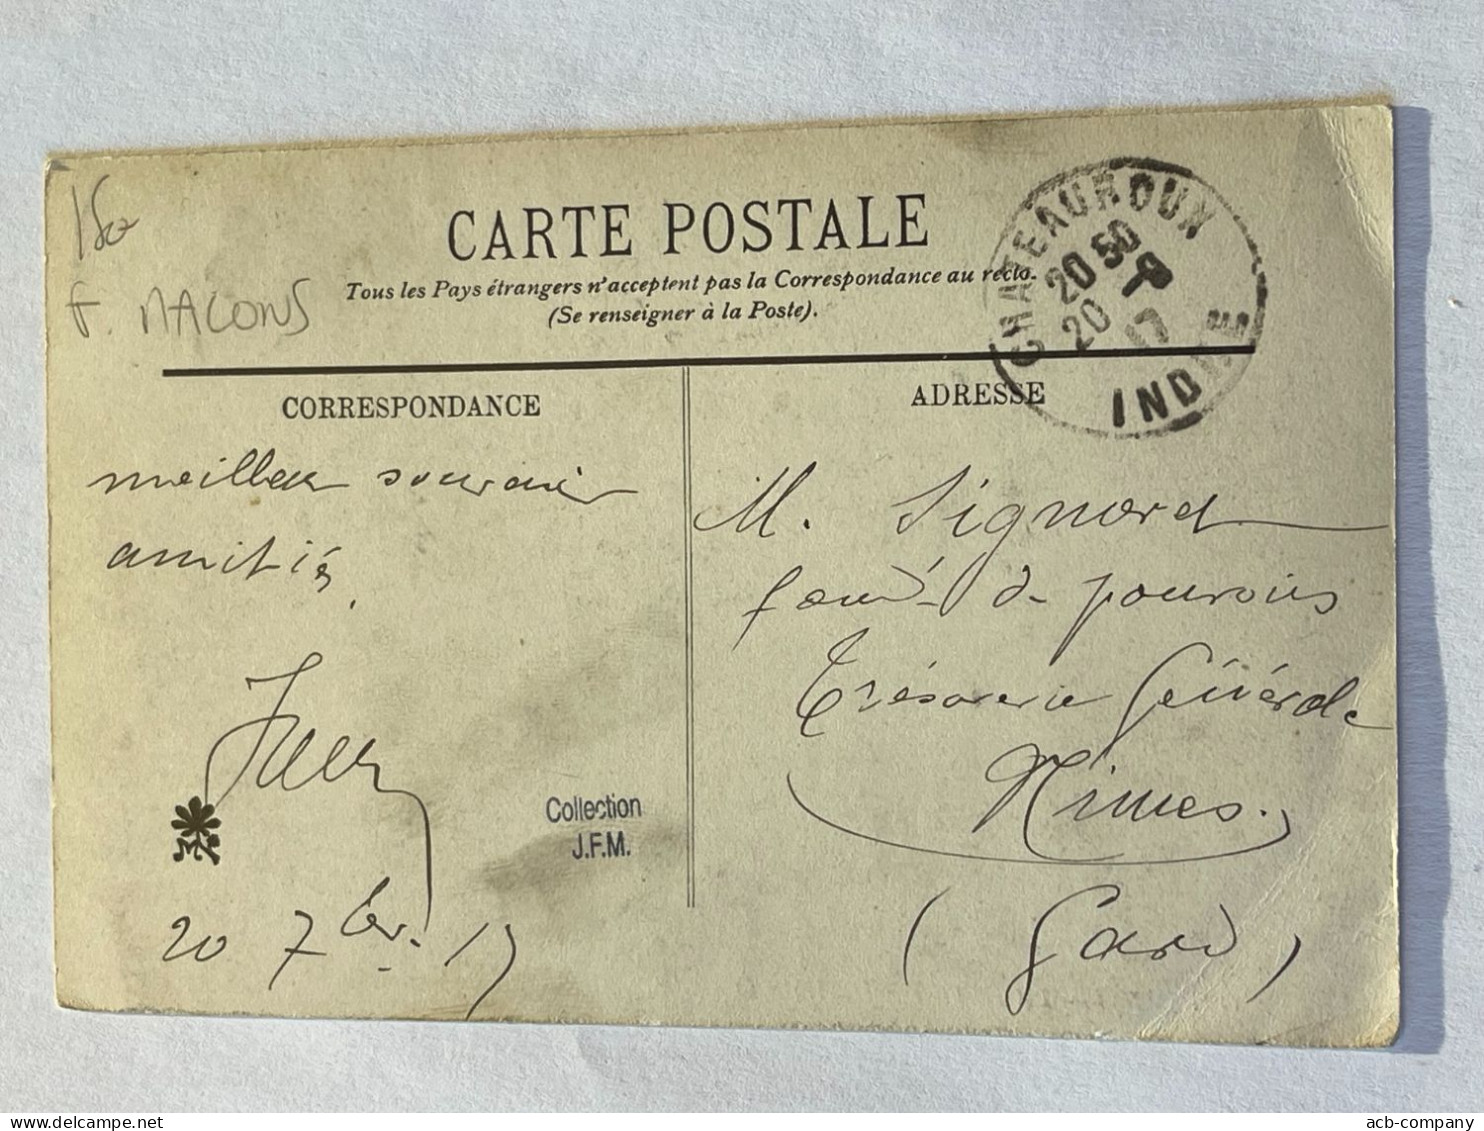 150
F. MACONS
CARTE POSTALE
Tous les Pays étrangers n'acceptent pas la Correspondance au recto.
(Se renseigner à la Poste).
CHATEAUROUX
20 50
20 9
17
INDRE
CORRESPONDANCE
meilleur souvenir
amitiés
Collection
J.F.M.
20 7bre. 17
ADRESSE
M. Signard
fondé de pouvoirs
Trésorerie Générale
Nimes.
(Gard)
acb-company